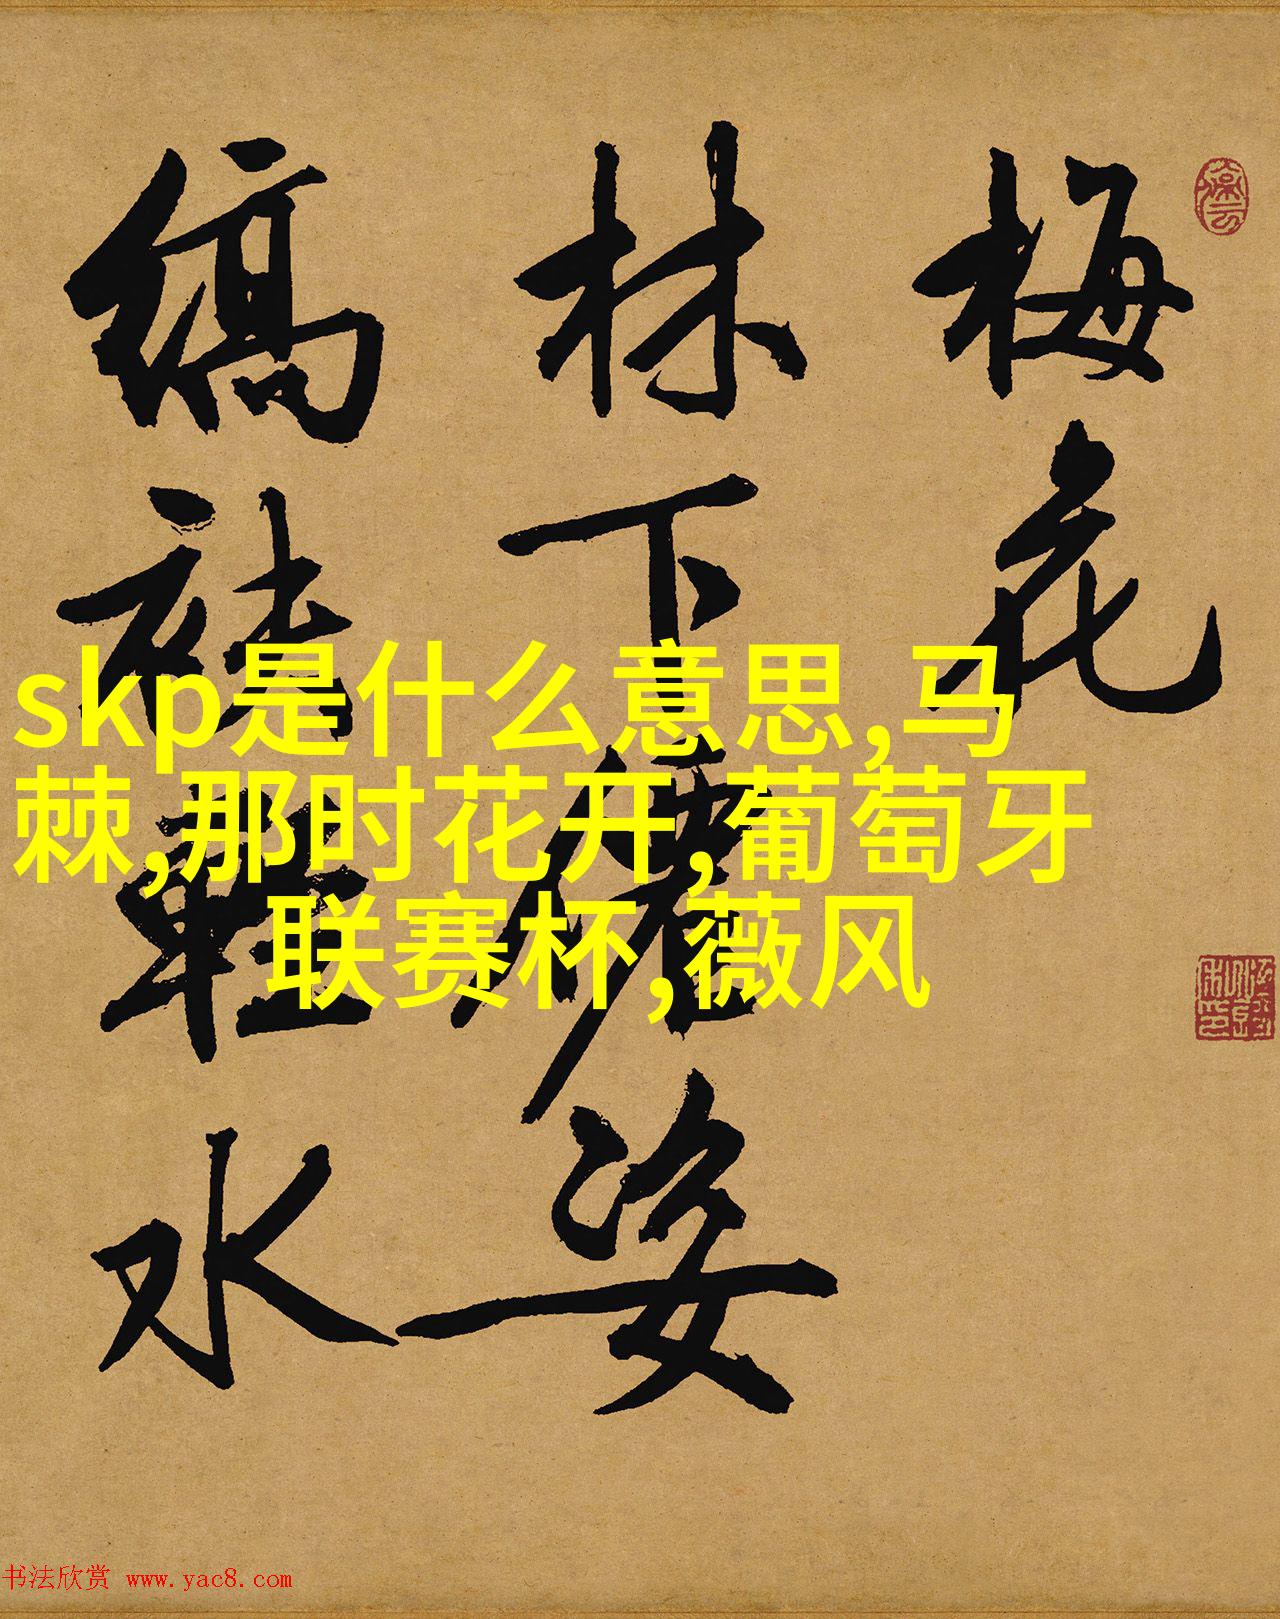 梅花
林下僊姿
縞袂輕水
skp是什么意思,马
棘,那时花开,葡萄牙
联赛杯,薇风
书法欣赏 www.yac8.com